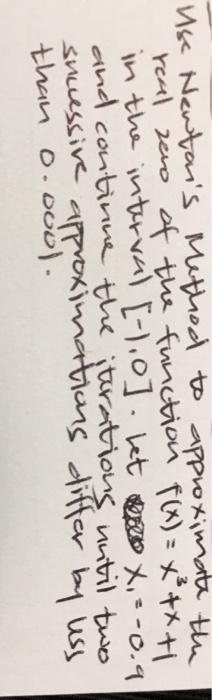 Use Newton's Method to approximate the
real zero of the function f(x) = x³+x+1
in the interval [-1,0]. Let x₁ = -0.9
and continue the iterations until two
successive approximations differ by less
than 0.0001.